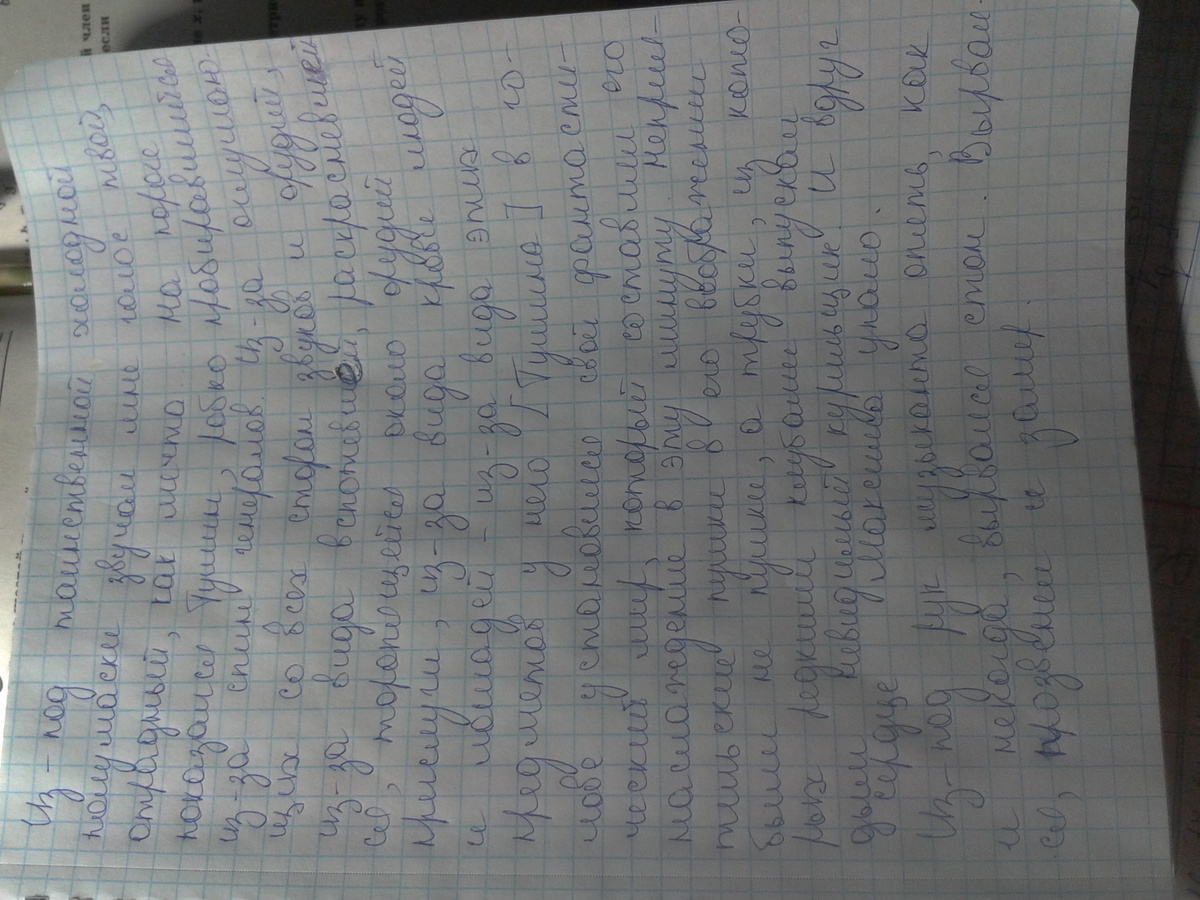 Из-под таинственной холодной
полумаски звучал мне голос твой,
отрадный, как мечта. На пороге
показался Тушин, робко пробиравшийся
из-за спин генералов. Из-за оглушаю-
щих со всех сторон звуков и орудий,
из-за вида вспотевшей, раскрасневшей
ся, торопящейся около орудий
прислуги, из-за вида крови людей
и лошадей - из-за вида этих
предметов у него [Тушина] в го-
лове установился свой фантасти-
ческий мир, который составлял его
наслаждение в эту минуту. Неприя-
тельские пушки в его воображении
были не пушки, а трубки, из кото-
рых редкими клубами выпускал
дым невидимый курильщик. И вдруг
сердце Максима упало.
Из-под рук музыканта опять, как
и некогда, вырвался стон. Вырвал-
ся, прозвенел и замер.
член
если